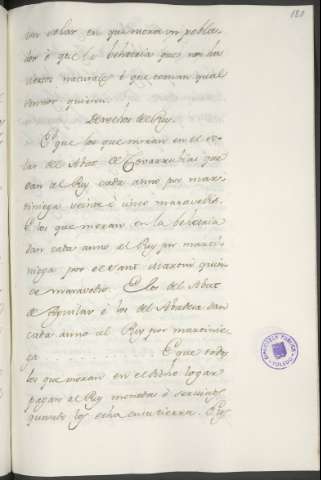 180
un solar en que mora un pobla-
dor è que la behetria que non ha
dectos naturales è que toman qual
sennor quisier.
Derechos del Rey.
È que los que moran en el so-
lar del Abat de Covarrubias que
dan al Rey cada anno por mar-
tiniega veinte è cinco maravedis.
È los que moran en la behetria
dan cada anno al Rey por marti-
niega por el Sant Martin quin-
ce maravedis. È los del Abat
de Aguilar è los del Abadesa dan
cada anno al Rey por martinie-
ga . . . . . . . . . . È que todos
los que moran en el dicho logar
pagan al Rey monedas è servicios
quando los echa en su tierra. È los
BIBLIOTECA PUBLICA
TOLEDO